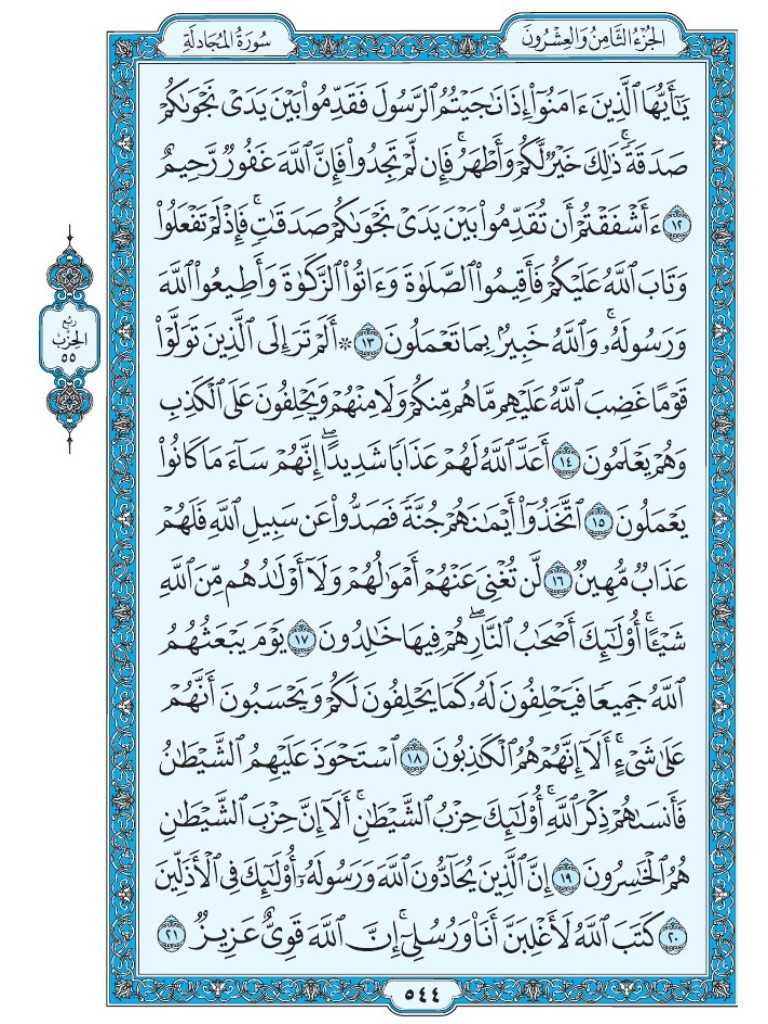 الجزء الثامن والعشرون
سورة المجادلة
يَٰٓأَيُّهَا ٱلَّذِينَ ءَامَنُوٓاْ إِذَا نَٰجَيۡتُمُ ٱلرَّسُولَ فَقَدِّمُواْ بَيۡنَ يَدَيۡ نَجۡوَىٰكُمۡ
صَدَقَةٗۚ ذَٰلِكَ خَيۡرٞ لَّكُمۡ وَأَطۡهَرُۚ فَإِن لَّمۡ تَجِدُواْ فَإِنَّ ٱللَّهَ غَفُورٞ رَّحِيمٌ
١٢ ءَأَشۡفَقۡتُمۡ أَن تُقَدِّمُواْ بَيۡنَ يَدَيۡ نَجۡوَىٰكُمۡ صَدَقَٰتٖۚ فَإِذۡ لَمۡ تَفۡعَلُواْ
وَتَابَ ٱللَّهُ عَلَيۡكُمۡ فَأَقِيمُواْ ٱلصَّلَوٰةَ وَءَاتُواْ ٱلزَّكَوٰةَ وَأَطِيعُواْ ٱللَّهَ
وَرَسُولَهُۥۚ وَٱللَّهُ خَبِيرُۢ بِمَا تَعۡمَلُونَ ١٣ ۞ أَلَمۡ تَرَ إِلَى ٱلَّذِينَ تَوَلَّوۡاْ
قَوۡمًا غَضِبَ ٱللَّهُ عَلَيۡهِم مَّا هُم مِّنكُمۡ وَلَا مِنۡهُمۡ وَيَحۡلِفُونَ عَلَى ٱلۡكَذِبِ
وَهُمۡ يَعۡلَمُونَ ١٤ أَعَدَّ ٱللَّهُ لَهُمۡ عَذَابٗا شَدِيدًاۖ إِنَّهُمۡ سَآءَ مَا كَانُواْ
يَعۡمَلُونَ ١٥ ٱتَّخَذُوٓاْ أَيۡمَٰنَهُمۡ جُنَّةٗ فَصَدُّواْ عَن سَبِيلِ ٱللَّهِ فَلَهُمۡ
عَذَابٞ مُّهِينٞ ١٦ لَّن تُغۡنِيَ عَنۡهُمۡ أَمۡوَٰلُهُمۡ وَلَآ أَوۡلَٰدُهُم مِّنَ ٱللَّهِ
شَيۡـًٔاۚ أُوْلَٰٓئِكَ أَصۡحَٰبُ ٱلنَّارِۖ هُمۡ فِيهَا خَٰلِدُونَ ١٧ يَوۡمَ يَبۡعَثُهُمُ
ٱللَّهُ جَمِيعٗا فَيَحۡلِفُونَ لَهُۥ كَمَا يَحۡلِفُونَ لَكُمۡ وَيَحۡسَبُونَ أَنَّهُمۡ
عَلَىٰ شَيۡءٍۚ أَلَآ إِنَّهُمۡ هُمُ ٱلۡكَٰذِبُونَ ١٨ ٱسۡتَحۡوَذَ عَلَيۡهِمُ ٱلشَّيۡطَٰنُ
فَأَنسَىٰهُمۡ ذِكۡرَ ٱللَّهِۚ أُوْلَٰٓئِكَ حِزۡبُ ٱلشَّيۡطَٰنِۚ أَلَآ إِنَّ حِزۡبَ ٱلشَّيۡطَٰنِ
هُمُ ٱلۡخَٰسِرُونَ ١٩ إِنَّ ٱلَّذِينَ يُحَآدُّونَ ٱللَّهَ وَرَسُولَهُۥٓ أُوْلَٰٓئِكَ فِي ٱلۡأَذَلِّينَ
٢٠ كَتَبَ ٱللَّهُ لَأَغۡلِبَنَّ أَنَا۠ وَرُسُلِيٓۚ إِنَّ ٱللَّهَ قَوِيٌّ عَزِيزٞ ٢١
ربع
الحزب
٥٥
٥٤٤